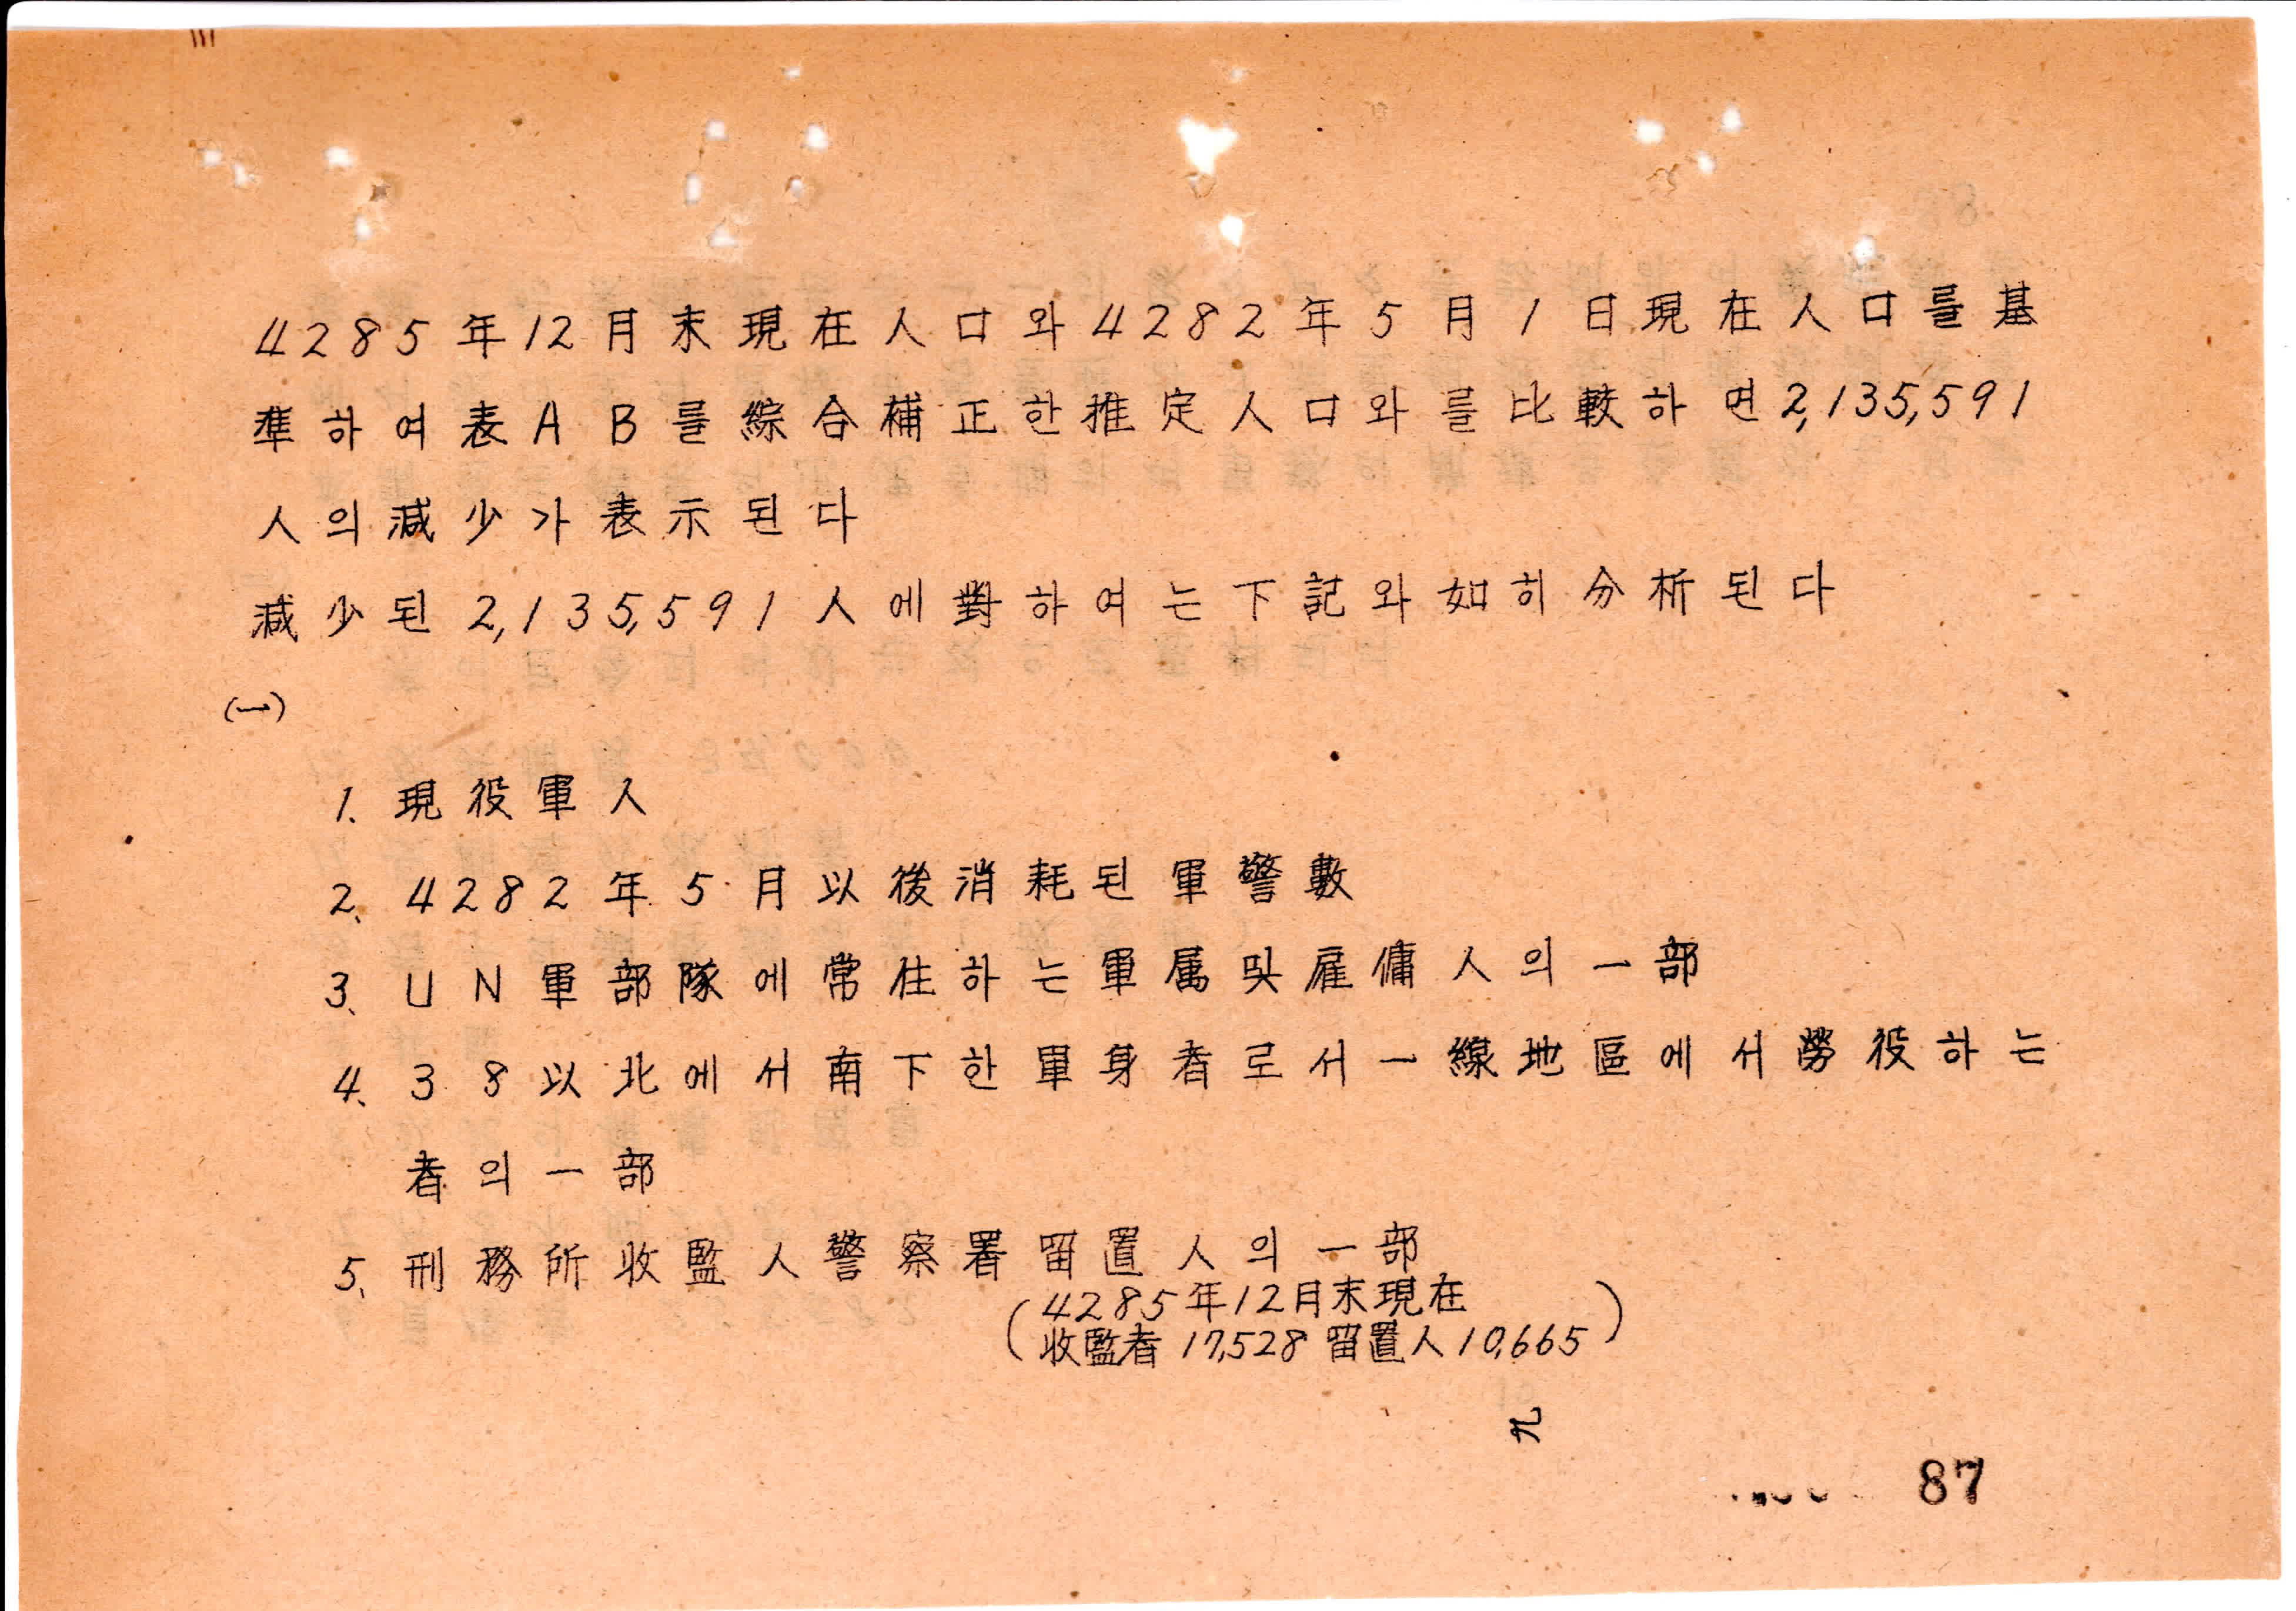 4285年12月末現在人口와4282年5月1日現在人口를基
準하여表AB를綜合補正한推定人口와를比較하면2,135,591
人의減少가表示된다
減少된2,135,591人에對하여는下記와如히分析된다
(一)
1. 現役軍人
2. 4282年5月以後消耗된軍警數
3. UN軍部隊에常住하는軍属및雇傭人의一部
4. 38以北에서南下한單身者로서一線地區에서勞役하는
者의一部
5. 刑務所收監人警察署留置人의一部
(4285年12月末現在
收監者17,528留置人10,665)
九
87